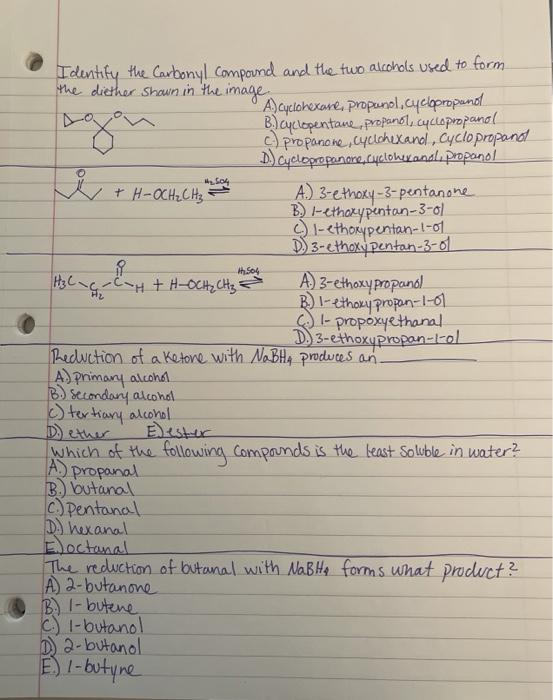 Identify the Carbonyl Compound and the two alcohols used to form
the diether shown in the image.
A) cyclohexane, propanol, cyclopropanol
B.) cyclopentane, propanol, cyclopropanol
C) propanone, cyclohexanol, cyclopropanol
D.) cyclopropanone, cyclohexanol, propanol
O O
O
+ H-OCH2CH3 H2SO4 ⇌
A.) 3-ethoxy-3-pentanone
B.) 1-ethoxypentan-3-ol
C.) 1-ethoxypentan-1-ol
D.) 3-ethoxypentan-3-ol
H3C-C-C-H + H-OCH2CH3 H2SO4 ⇌
O
H2
A.) 3-ethoxypropanol
B.) 1-ethoxypropan-1-ol
C.) 1-propoxyethanal
D.) 3-ethoxypropan-1-ol
Reduction of a ketone with NaBH4 produces an
A) primary alcohol
B.) secondary alcohol
C) tertiary alcohol
D) ether E) ester
which of the following compounds is the least soluble in water?
A.) propanal
B.) butanal
C.) pentanal
D.) hexanal
E.) octanal
The reduction of butanal with NaBH4 forms what product?
A) 2-butanone
B.) 1-butene
C.) 1-butanol
D) 2-butanol
E.) 1-butyne